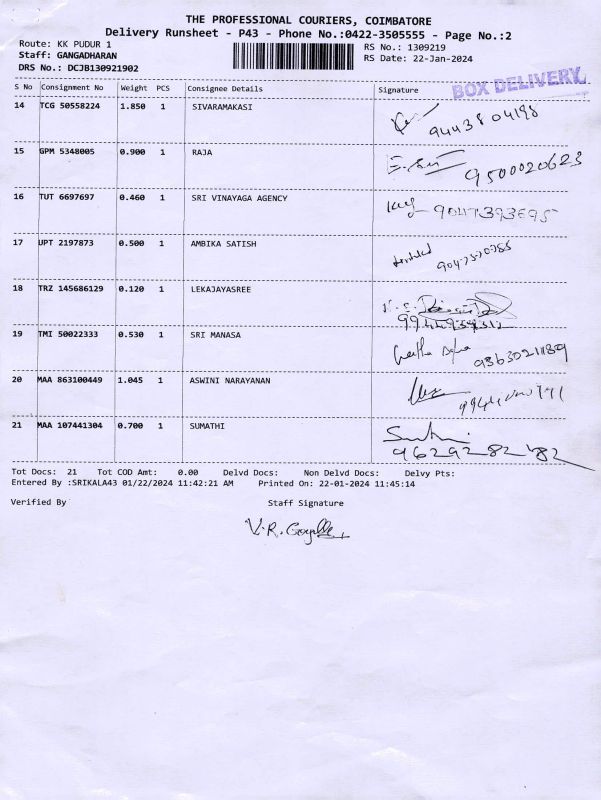 THE PROFESSIONAL COURIERS, COIMBATORE
Delivery Runsheet - P43 - Phone No.:0422-3505555 - Page No.:2
Route: KK PUDUR 1
RS No.: 1309219
Staff: GANGADHARAN
RS Date: 22-Jan-2024
DRS No.: DCJB130921902
BOX DELIVERY
S No Consignment No Weight PCS Consignee Details Signature
14 TCG 50558224 1.850 1 SIVARAMAKASI 9443804198
15 GPM 5348005 0.900 1 RAJA 9500020623
16 TUT 6697697 0.460 1 SRI VINAYAGA AGENCY 9047393695
17 UPT 2197873 0.500 1 AMBIKA SATISH
18 TRZ 145686129 0.120 1 LEKAJAYASREE
19 TMI 50022333 0.530 1 SRI MANASA
20 MAA 863100449 1.045 1 ASWINI NARAYANAN
21 MAA 107441304 0.700 1 SUMATHI 9629282182
Tot Docs: 21 Tot COD Amt: 0.00 Delvd Docs: Non Delvd Docs: Delvy Pts:
Entered By :SRIKALA43 01/22/2024 11:42:21 AM Printed On: 22-01-2024 11:45:14
Verified By Staff Signature
V.R.